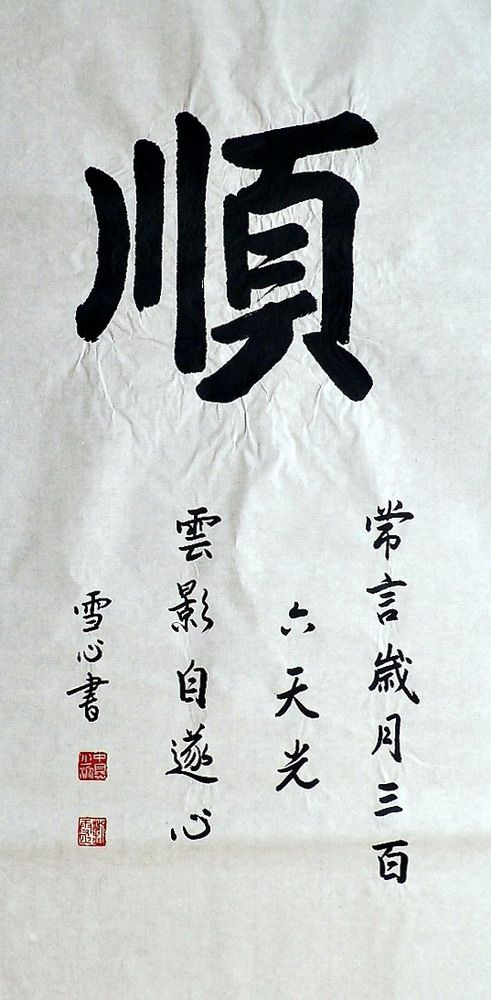 順
常言歲月三百
六天光
雲影自遂心
雪心書